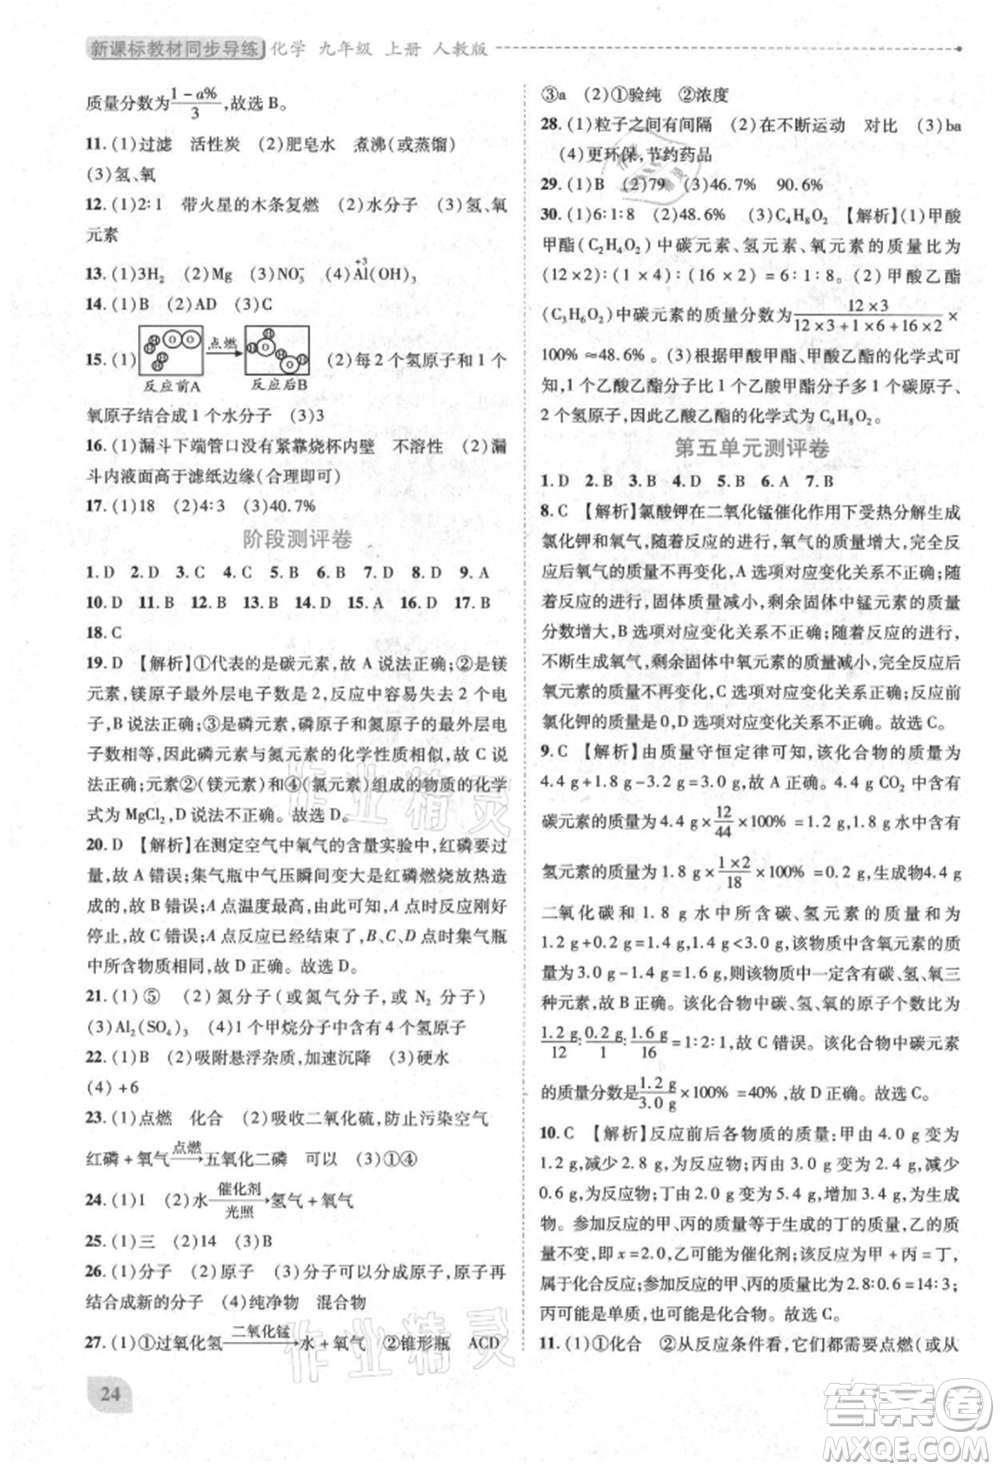 新课标教材同步导练 化学 九年级 上册 人教版
质量分数为(1－a%)/3,故选 B。
11.(1)过滤 活性炭 (2)肥皂水 煮沸(或蒸馏)
(3)氢、氧
12.(1)2∶1 带火星的木条复燃 (2)水分子 (3)氢、氧
元素
13.(1)3H₂ (2)Mg (3)NO₃⁻ (4)Al(+3)(OH)₃
14.(1)B (2)AD (3)C
点燃
15.(1) (2)每 2 个氢原子和 1 个
反应前A 反应后B
氧原子结合成 1 个水分子 (3)3
16.(1)漏斗下端管口没有紧靠烧杯内壁 不溶性 (2)漏
斗内液面高于滤纸边缘(合理即可)
17.(1)12 (2)4∶3 (3)40.7%
阶段测评卷
1.D 2.D 3.D 4.D 5.C 6.D 7.B 8.D 9.A
10.D 11.B 12.B 13.B 14.D 15.A 16.D 17.B
18.C
19.D 【解析】①代表的是碳元素,故 A 说法正确;②是镁
元素,镁原子最外层电子数为 2,反应中容易失去 2 个电
子,B 说法正确;③是磷元素,磷原子和氮原子的最外层电
子数相等,因此磷元素与氮元素的化学性质相似,故 C 说法
正确;元素②(镁元素)和④(氯元素)形成的物质的化学
式为 MgCl₂,故 D 说法错误。故选 D。
20.D 【解析】在测定空气中氧气的含量实验中,红磷要
过量,故 A 错误;集气瓶中气压瞬间增大是红磷燃烧放热造
成的,故 B 错误;A 点温度最高,此时反应仍在进行,A 点后
停止,故 C 错误;A 点时反应仍在进行,A、B 点对应集气瓶
中所含物质种类相同,故 D 正确。故选 D。
21.(1)⑤ (2)氮分子(或氮气分子、或 N₂ 分子)
(3)Al₂(SO₄)₃ (4)1 个甲烷分子中有 4 个氢原子
22.(1)B (2)吸附悬浮杂质,加速沉降 (3)硬水
(4)+6
23.(1)点燃 化合 (2)吸收二氧化硫,防止污染空气
红磷＋氧气 —点燃→ 五氧化二磷 可以 (3)①④
24.(1)1 (2)水 —催化剂/光照→ 氢气＋氧气
25.(1)三 (2)14 (3)B
26.(1)分子 (2)原子 (3)原子可以构成原子,原子再
结合成新的分子 (4)纯净物 混合物
27.(1)①过氧化氢 —二氧化锰→ 水＋氧气 ②锥形瓶 ACD
24
③a (2)①验纯 ②浓度
28.(1)粒子之间有间隔 (2)在不断运动 对比 (3)ba
(4)更环保,节约药品
29.(1)B (2)79 (3)46.7% 90.6%
30.(1)6∶1∶8 (2)48.6% (3)C₄H₈O₂ 【解析】(1)甲酸
甲酯(C₂H₄O₂)中碳元素、氢元素、氧元素的质量比为
(12×2)∶(1×4)∶(16×2)＝6∶1∶8。(2)甲酸乙酯
(C₃H₆O₂)中碳元素的质量分数为(12×3)/(12×3+1×6+16×2)×
100% ≈48.6%。(3)根据甲酸甲酯、甲酸乙酯的化学式可
知,1 个乙酸乙酯分子比 1 个乙酸甲酯分子多 1 个碳原子、
2 个氢原子,因此乙酸乙酯的化学式为 C₄H₈O₂。
第五单元测评卷
1.D 2.B 3.B 4.D 5.B 6.A 7.B
8.C 【解析】氯酸钾在二氧化锰催化作用下受热分解生成
氯化钾和氧气,随着反应的进行,氧气的质量增大,完全反
应后氧气的质量不再变化,A 选项对应变化关系不符合;随
着反应的进行,固体质量减小,剩余固体中锰元素的质量
分数增大,B 选项对应变化关系不符合;随着反应的进行,
不断生成氧气,剩余固体中氧元素的质量减小,完全反应后
氧元素的质量不再变化,C 选项对应变化关系符合;反应前
氯化钾的质量是 0,D 选项对应变化关系不符合。故选 C。
9.C 【解析】由质量守恒定律可知,该化合物的质量为
4.4 g+1.8 g－3.2 g＝3.0 g,故 A 正确。4.4 g CO₂ 中含有
碳元素的质量为 4.4 g×12/44×100%＝1.2 g,1.8 g 水中含有
氢元素的质量为 1.8 g×(1×2)/18×100%＝0.2 g,4.4 g
二氧化碳和 1.8 g 水中所含碳、氢元素的质量之和为
1.2 g+0.2 g＝1.4 g<3.0 g,则该物质中含氧元素的质量为
3.0 g－1.2 g－0.2 g＝1.6 g,则该物质一定含有碳、氢、氧三
种元素,故 B 正确。该化合物中碳、氢、氧原子的个数比为
1.2 g/12∶0.2 g/1∶1.6 g/16＝1∶2∶1,故 C 错误。该化合物中碳元素
的质量分数是1.2 g/3.0 g×100% ＝40%,故 D 正确。故选 C。
10.C 【解析】反应前后各物质的质量:甲由 4.0 g 变为
1.2 g,质量减少,为反应物;丙由 1.2 g 变为 0.6 g,质量减
少,为反应物;丁由 2.8 g 变为 6.2 g,质量增加,为生成
物。参加反应的甲、丙的质量等于生成丁的质量,乙的质
量不变,即 x＝2.0,乙可能为催化剂,该反应为甲＋丙＝丁,
属于化合反应;参加反应的甲、丙的质量比为 2.8∶0.6＝14∶3,
丙可能是单质,也可能是化合物。故选 C。
11.(1)①化合 ②从反应条件看,它们都是点燃(或从
作业精灵
作业精灵
答案卷
MXQE.COM